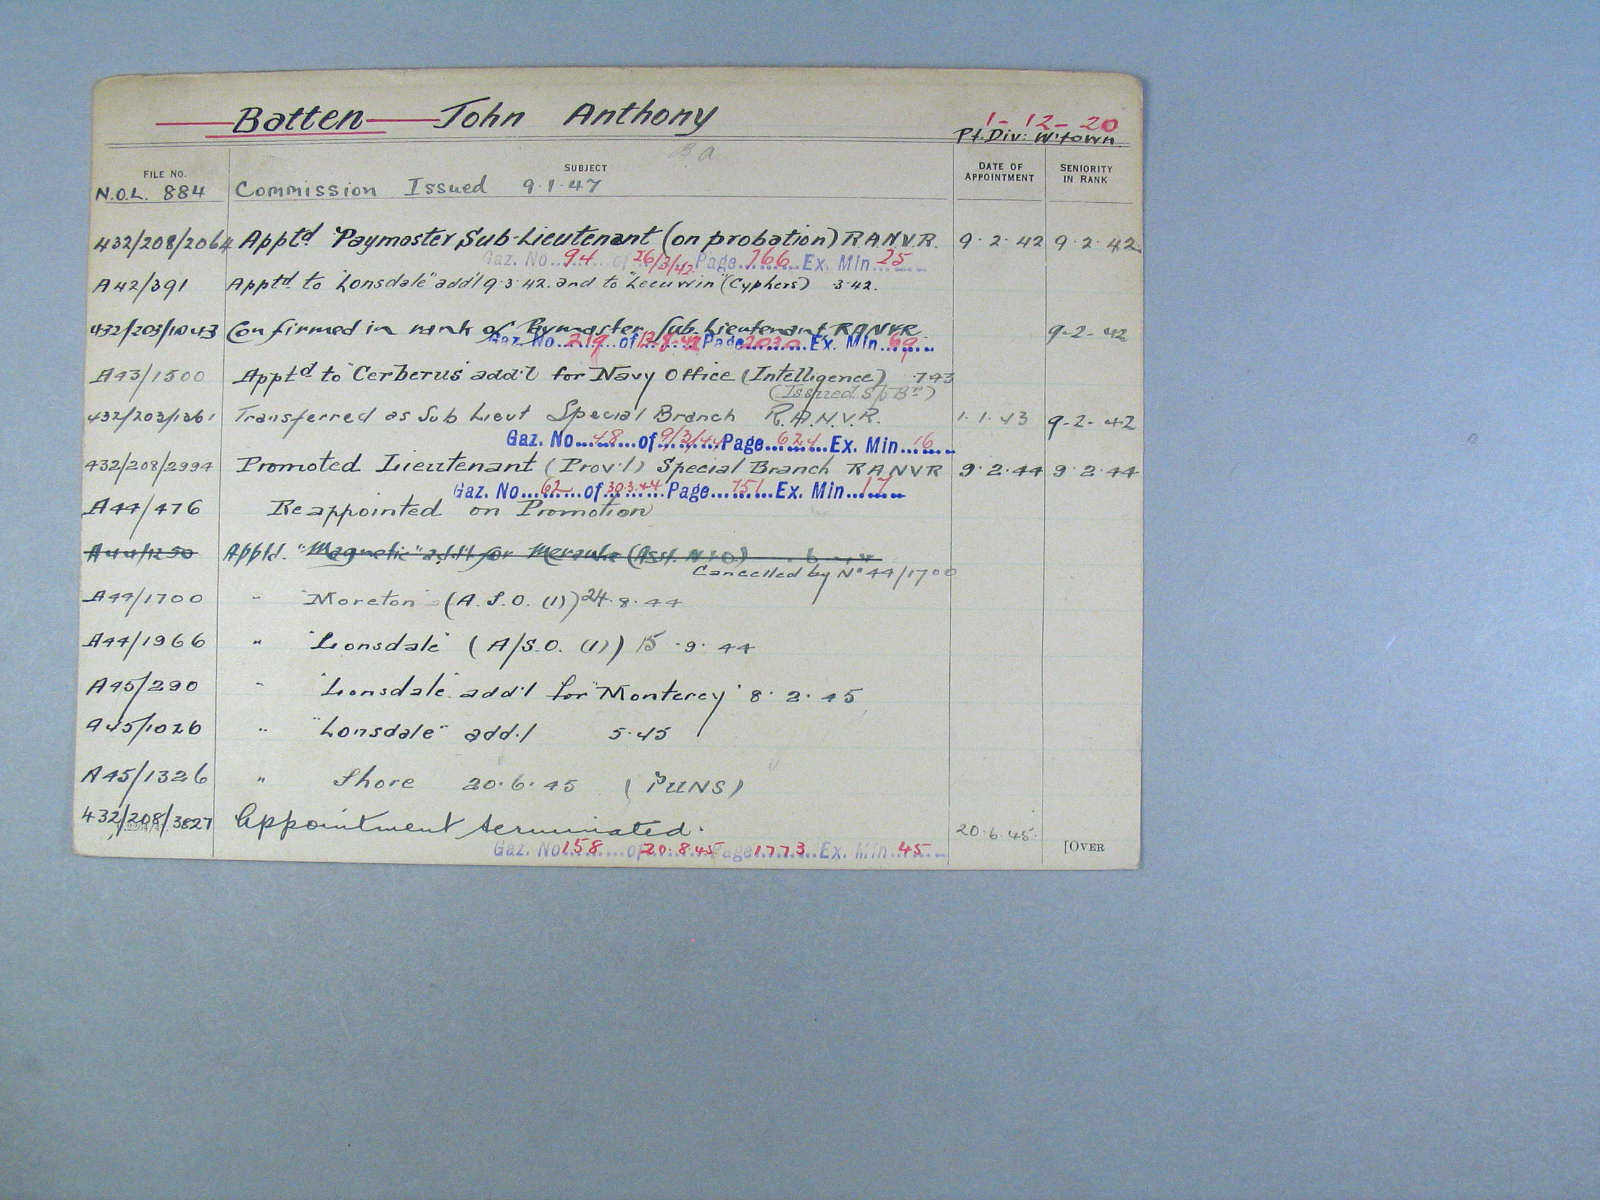 Batten John Anthony
1-12-20
Pt. Div: W'town.
B.A.
FILE NO. SUBJECT DATE OF APPOINTMENT SENIORITY IN RANK
N.O.L. 884 Commission Issued 9.1.47
432/208/2064 Apptd Paymaster Sub-Lieutenant (on probation) R.A.N.V.R. 9.2.42 9.2.42
Gaz. No. 94 of 26/3/42 Page 766 Ex. Min. 25
A42/391 Apptd to "Lonsdale" add'l 9.3.42. and to "Leeuwin" (Cyphers) 3.42.
432/203/1043 Confirmed in rank of Paymaster Sub-Lieutenant RANVR 9-2-42
Gaz. No. 219 of 12.8.42 Page Ex. Min. 69
A43/1500 Apptd to "Cerberus" add'l for Navy Office (Intelligence) 7.43
(Issued Sp Br)
432/203/1361 Transferred as Sub Lieut Special Branch R.A.N.V.R. 1.1.43 9-2-42
Gaz. No. 48 of 9/3/44 Page 624 Ex. Min. 16
432/208/2994 Promoted Lieutenant (Prov'l) Special Branch RANVR 9.2.44 9.2.44
Gaz. No. 62 of 30.3.44 Page 751 Ex. Min. 17
A44/476 Reappointed on Promotion
A44/1250 Apptd. "Magnetic" add'l for Merauke (Asst. N.I.O.)
Cancelled by No 44/1700
A44/1700 " "Moreton" (A.S.O. (1)) 24.8.44
A44/1966 " "Lonsdale" (A/S.O. (1)) 15.9.44
A45/290 " "Lonsdale" add'l for "Monterey" 8.2.45
A45/1026 " "Lonsdale" add'l 5.45
A45/1326 " Shore 20.6.45 (PUNS)
432/208/3827 Appointment terminated. 20.6.45.
Gaz. No. 158 of 20.8.45 Page 1773 Ex. Min. 45
[OVER